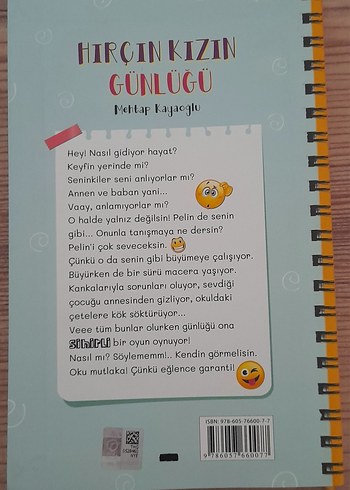 HIRÇIN KIZIN
GÜNLÜĞÜ
Mehtap Kayaoğlu
Hey! Nasıl gidiyor hayat?
Keyfin yerinde mi?
Seninkiler seni anlıyorlar mı?
Annen ve baban yani...
Vaay, anlamıyorlar mı?
O halde yalnız değilsin! Pelin de senin
gibi... Onunla tanışmaya ne dersin?
Pelin'i çok seveceksin.
Çünkü o da senin gibi büyümeye çalışıyor.
Büyürken de bir sürü macera yaşıyor.
Kankalarıyla sorunları oluyor, sevdiği
çocuğu annesinden gizliyor, okuldaki
çetelere kök söktürüyor...
Veee tüm bunlar olurken günlüğü ona
SİHİRLİ bir oyun oynuyor!
Nasıl mı? Söylememm!.. Kendin görmelisin.
Oku mutlaka! Çünkü eğlence garanti!
ISBN: 978-605-76600-7-7
9 786057 660077